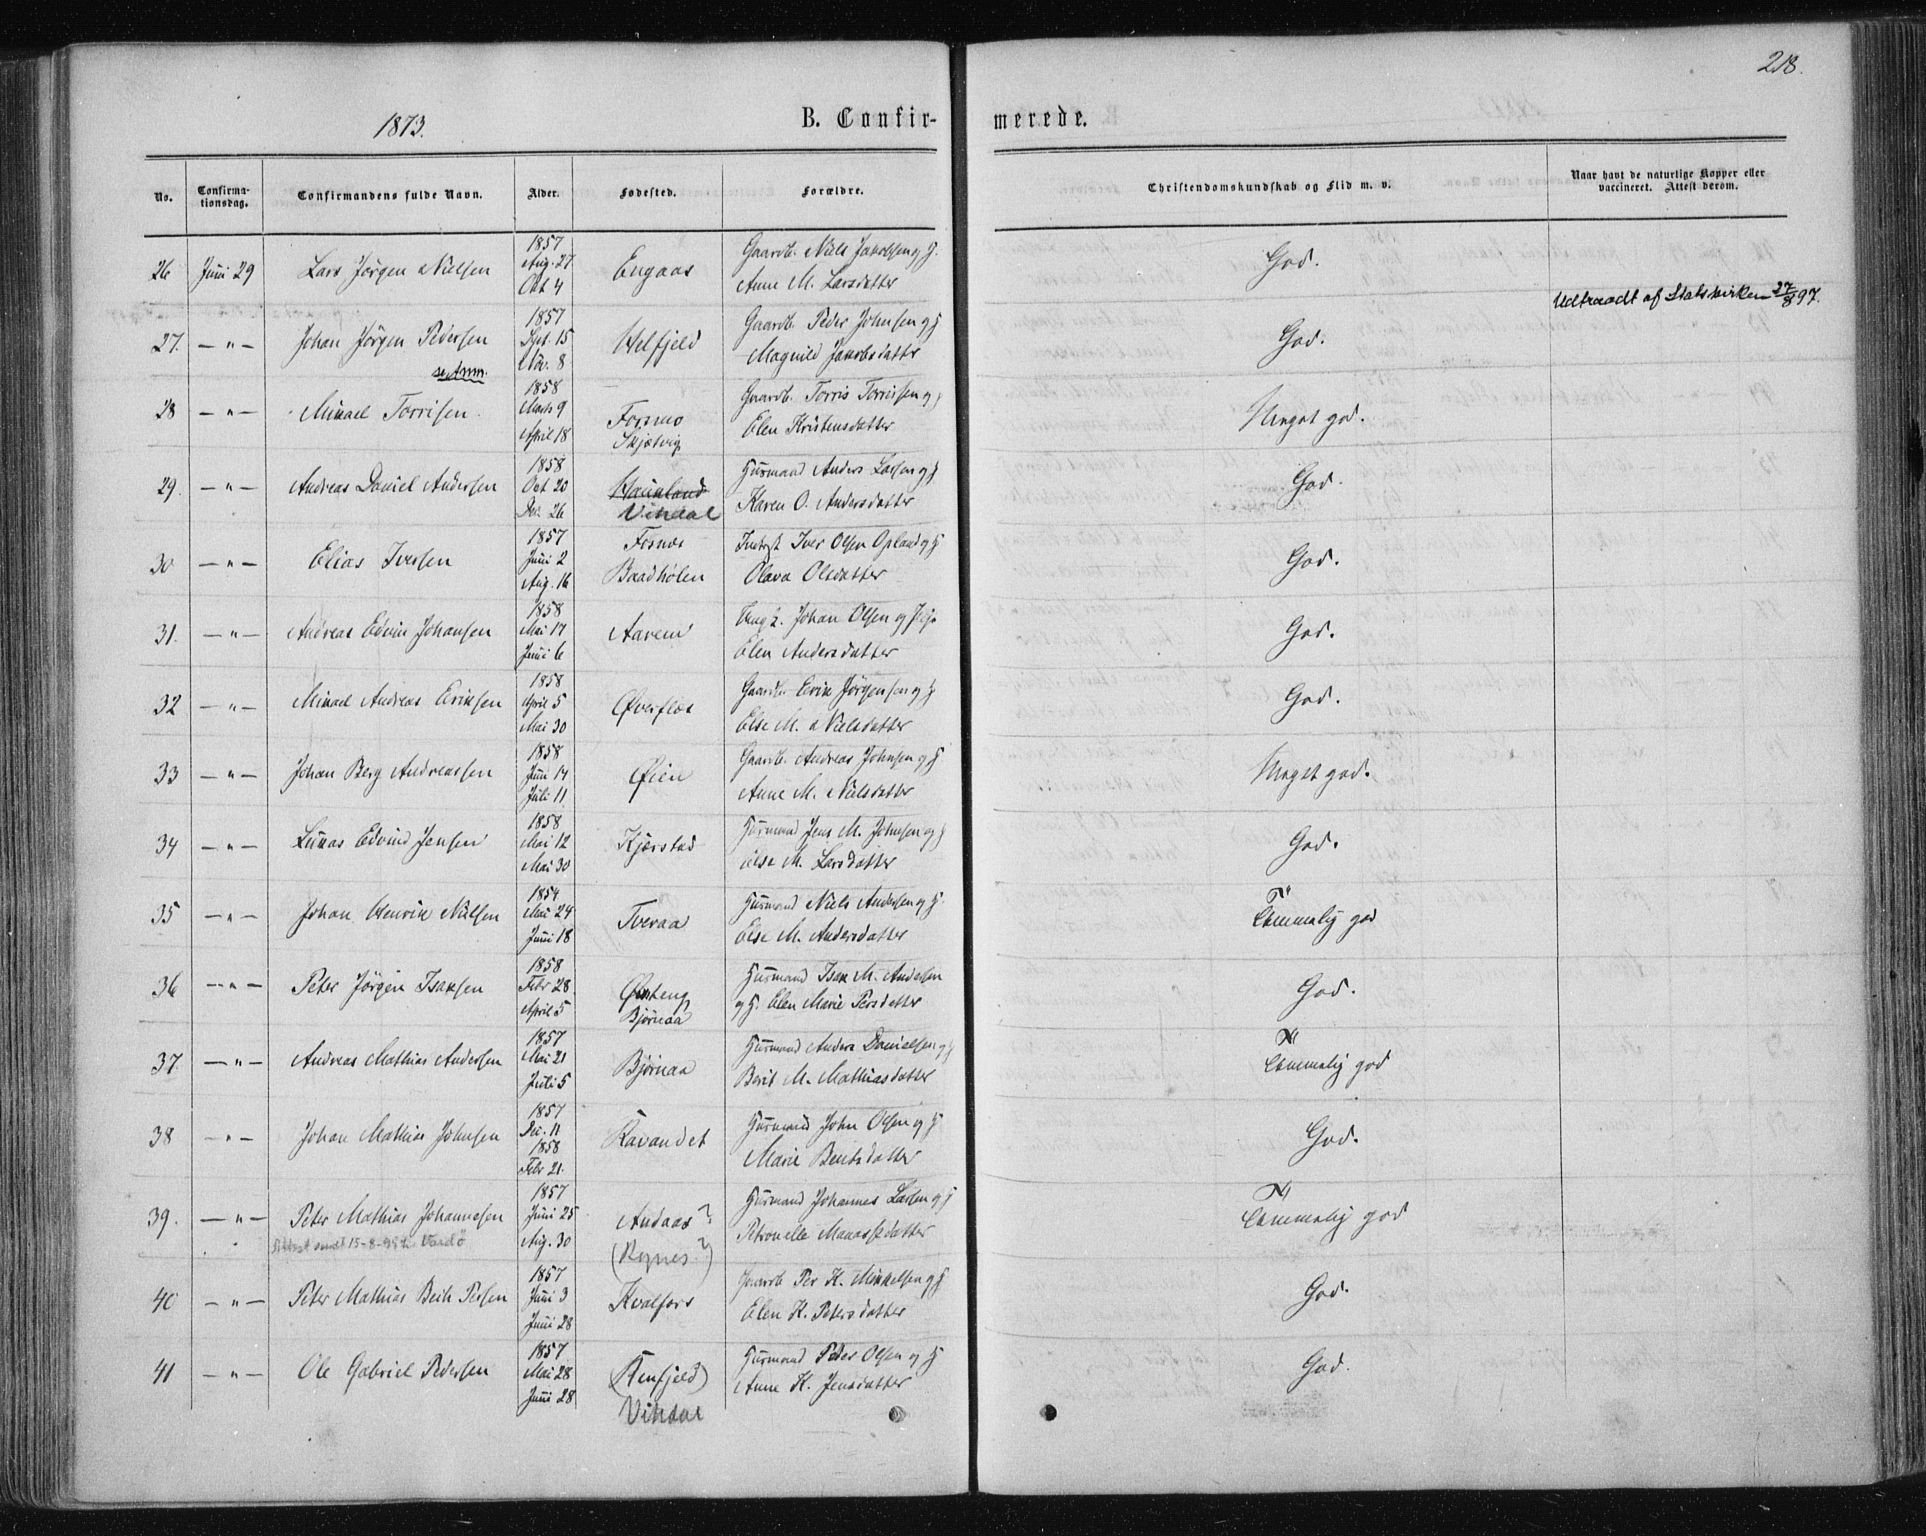 218.
1873.
B. Confir-
merede.
No.
Confirma-
tionsdag.
Confirmandens fulde Navn.
Alder.
Fødested.
Forældre.
Christendomskundskab og Flid m. v.
Naar havt de naturlige Kopper eller
vaccineret. Attest derom.
26 Juni 29 Lars Jørgen Nielsen 1857 Aug. 27 Oct 4 Engaas
Gaardb. Niels Jakobsen og H.
Anne M. Larsdatter
God.
Udtraadt af Statskirken 27/8 97.
27. — " — Johan Jørgen Pedersen 1857 Sept. 15 Nov. 8 Helfjeld
se Anm.
Gaardb. Peder Johnsen og H
Magnild Jakobsdatter
God.
28 — " — Mikael Torrisen 1858 Marts 9 April 18 Forsmo
Skjætvig
Gaardb. Torris Torrissen og H
Elen Kristensdatter
Meget god.
29. — " — Andreas Daniel Andersen 1858 Oct 20 Dec. 26 Haukland
Vikdal
Husmand Anders Larsen og H
Karen O. Andersdatter
God.
30 — " — Elias Iversen 1857 Juni 2 Aug. 16 Fosnæs
Baadhølen
Inderst Iver Olsen Opland og H
Olava Olsdatter
God.
31. — " — Andreas Edvin Johansen 1858 Mai 17 Juni 6 Aarem
Ungk. Johan Olsen og Pige
Elen Andersdatter
God.
32 — " — Mikael Andreas Eriksen 1858 April 5 Mai 30 Øverfløs
Gaardb. Erik Jørgensen og H
Else M. Nielsdatter
God.
33 — " — Johan Berg Andreassen 1858 Juni 14 Juli 11 Øien
Gaardb. Andreas Johnsen og H
Anne M. Nielsdatter
Meget god.
34 — " — Lukas Edvind Jensen 1858 Mai 12 Mai 30 Kjærstad
Husmand Jens M. Johnsen og H
Else M. Larsdatter
God.
35 — " — Johan Henrik Nielsen 1854 Mai 24 Juni 18 Tveraa
Husmand Niels Andersen og H.
Else M. Andersdatter
Temmelig god
36 — " — Peter Jørgen Isaksen 1858 Febr 28 April 5 Østeng
Bjørnaa
Husmand Isak M. Andersen
og H. Elen Marie Persdatter
God.
37 — " — Andreas Mathias Andersen 1857 Mai 21 Juli 5 Bjørnaa
Husmand Anders Danielsen og H
Berit M. Mathiasdatter
Temmelig god
38 — " — Johan Mathias Johnsen 1857 Dec. 11 1858 Febr 21. Ravandet
Husmand John Olsen og H
Marie Bentsdatter
God.
39. — " — Peter Mathias Johannesen 1857 Juni 25 Aug. 30 Andaas?
(Rognes?)
Attest sendt 15-8-99 Vardø
Husmand Johannes Larsen og H
Petronelle Manassedatter
Temmelig god
40 — " — Peter Mathias Beck Persen 1857 Juni 3 Juni 28 Kvalfors
Gaardb Per K. Mikkelsen og H
Elen K. Petersdatter
God.
41 — " — Ole Gabriel Pedersen 1857 Mai 28 Juni 28 (Renfjeld)
Vikdal
Husmand Peder Olsen og H
Anne K. Jensdatter
God.